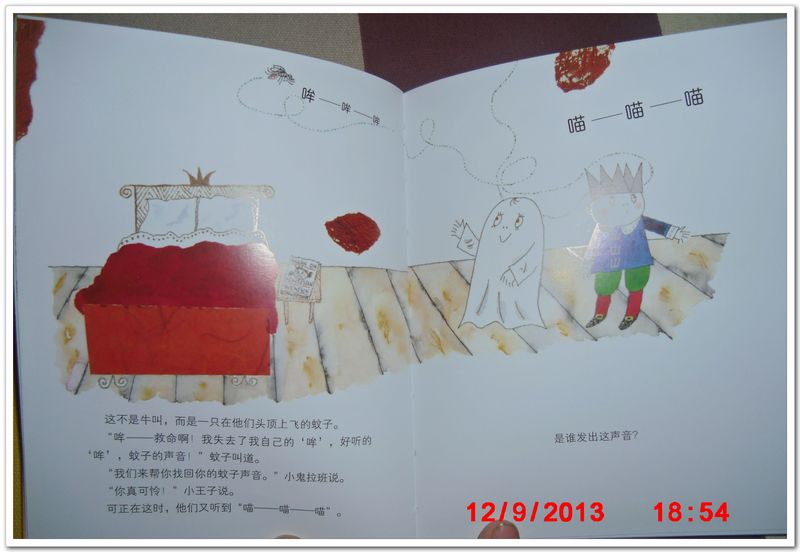 哞——哞——哞
喵——喵——喵
这不是牛叫,而是一只在他们头顶上飞的蚊子。
“哞——救命啊!我失去了我自己的‘哞’,好听的
‘哞’,蚊子的声音!”蚊子叫道。
“我们来帮你找回你的蚊子声音。”小鬼拉班说。
“你真可怜!”小王子说。
可正在这时,他们又听到“喵——喵——喵”。
是谁发出这声音?
12/9/2013 18:54